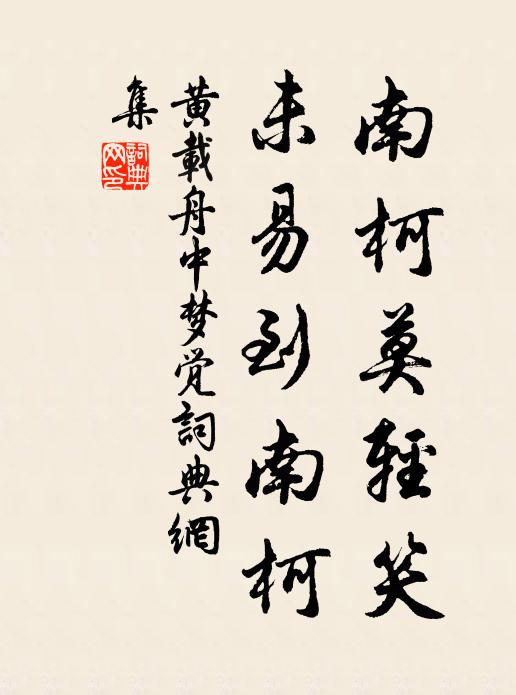 南柯莫輕笑
未易到南柯
黄載舟中梦覺詞典網
集
詞典網印